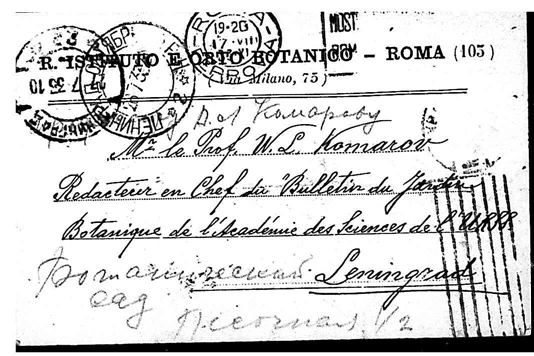 19-20
17 VIII
MOST
R. ISTITUTO E ORTO BOTANICO - ROMA (103)
(Via Milano, 75)
Комарову
Mr le Prof. W. L. Komarov
Rédacteur en Chef du "Bulletin du Jardin
Botanique de l'Académie des Sciences de l'URSS.
Leningrad
Ботанический
сад
Песочная 1/2